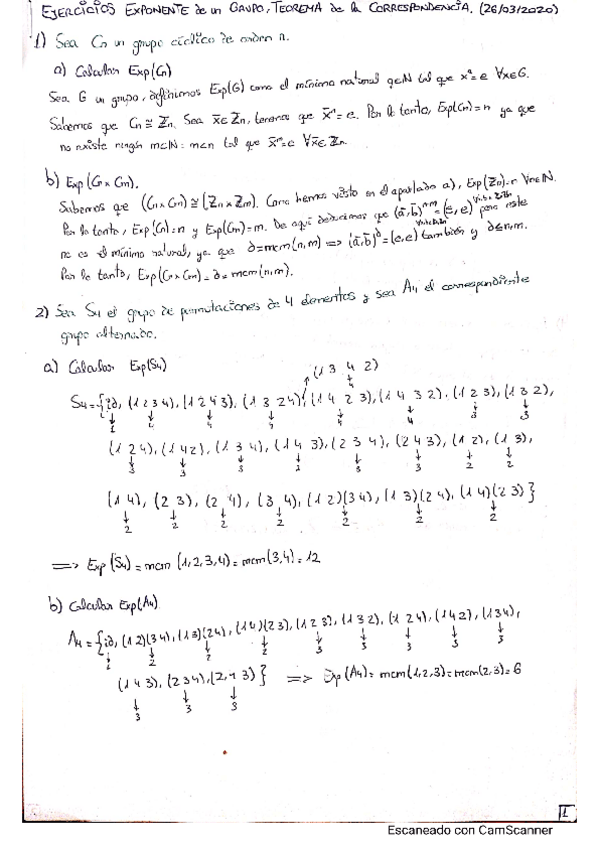 EJERCICIOS EXPONENTE de un GRUPO, TEOREMA de la CORRESPONDENCIA. (26/03/2020)
1) Sea Cn un grupo cíclico de orden n.
a) Calcular Exp(Cn)
Sea G un grupo, definimos Exp(G) como el mínimo natural q∈N tal que x^q = e ∀x∈G.
Sabemos que Cn ≅ Zn. Sea x̄∈Zn, tenemos que x̄^n = e. Por lo tanto, Exp(Cn)=n ya que
no existe ningún m∈N: m<n tal que x̄^m = e ∀x̄∈Zn.
b) Exp(Cn × Cm).
Sabemos que (Cn × Cm) ≅ (Zn × Zm). Como hemos visto en el apartado a), Exp(Zn)=n ∀n∈N.
Por lo tanto, Exp(Cn)=n y Exp(Cm)=m. De aquí deducimos que (ā,b̄)^nm = (e,e) pero este
no es el mínimo natural, ya que ∂=mcm(n,m) ⟹ (ā,b̄)^∂ = (e,e) también y ∂≤n.m.
Por lo tanto, Exp(Cn×Cm)=∂=mcm(n,m).
2) Sea S4 el grupo de permutaciones de 4 elementos y sea A4 el correspondiente
grupo alternado.
a) Calcular Exp(S4)
(1 3 4 2)
↓
4
S4={id, (1 2 3 4), (1 2 4 3), (1 3 2 4), (1 4 2 3), (1 4 3 2), (1 2 3), (1 3 2),
↓ ↓ ↓ ↓ ↓ ↓ ↓ ↓
1 4 4 4 4 4 3 3
(1 2 4), (1 4 2), (1 3 4), (1 4 3), (2 3 4), (2 4 3), (1 2), (1 3),
↓ ↓ ↓ ↓ ↓ ↓ ↓ ↓
3 3 3 3 3 2 2
(1 4), (2 3), (2 4), (3 4), (1 2)(3 4), (1 3)(2 4), (1 4)(2 3)}
↓ ↓ ↓ ↓ ↓ ↓ ↓
2 2 2 2 2 2 2
⟹ Exp(S4) = mcm (1,2,3,4) = mcm(3,4) = 12
b) Calcular Exp(A4)
A4={id, (1 2)(3 4), (1 3)(2 4), (1 4)(2 3), (1 2 3), (1 3 2), (1 2 4), (1 4 2), (1 3 4),
↓ ↓ ↓ ↓ ↓ ↓ ↓ ↓ ↓
1 2 2 2 3 3 3 3 3
(1 4 3), (2 3 4), (2 4 3)} ⟹ Exp(A4) = mcm(1,2,3) = mcm(2,3) = 6
↓ ↓ ↓
3 3 3
1
Escaneado con CamScanner